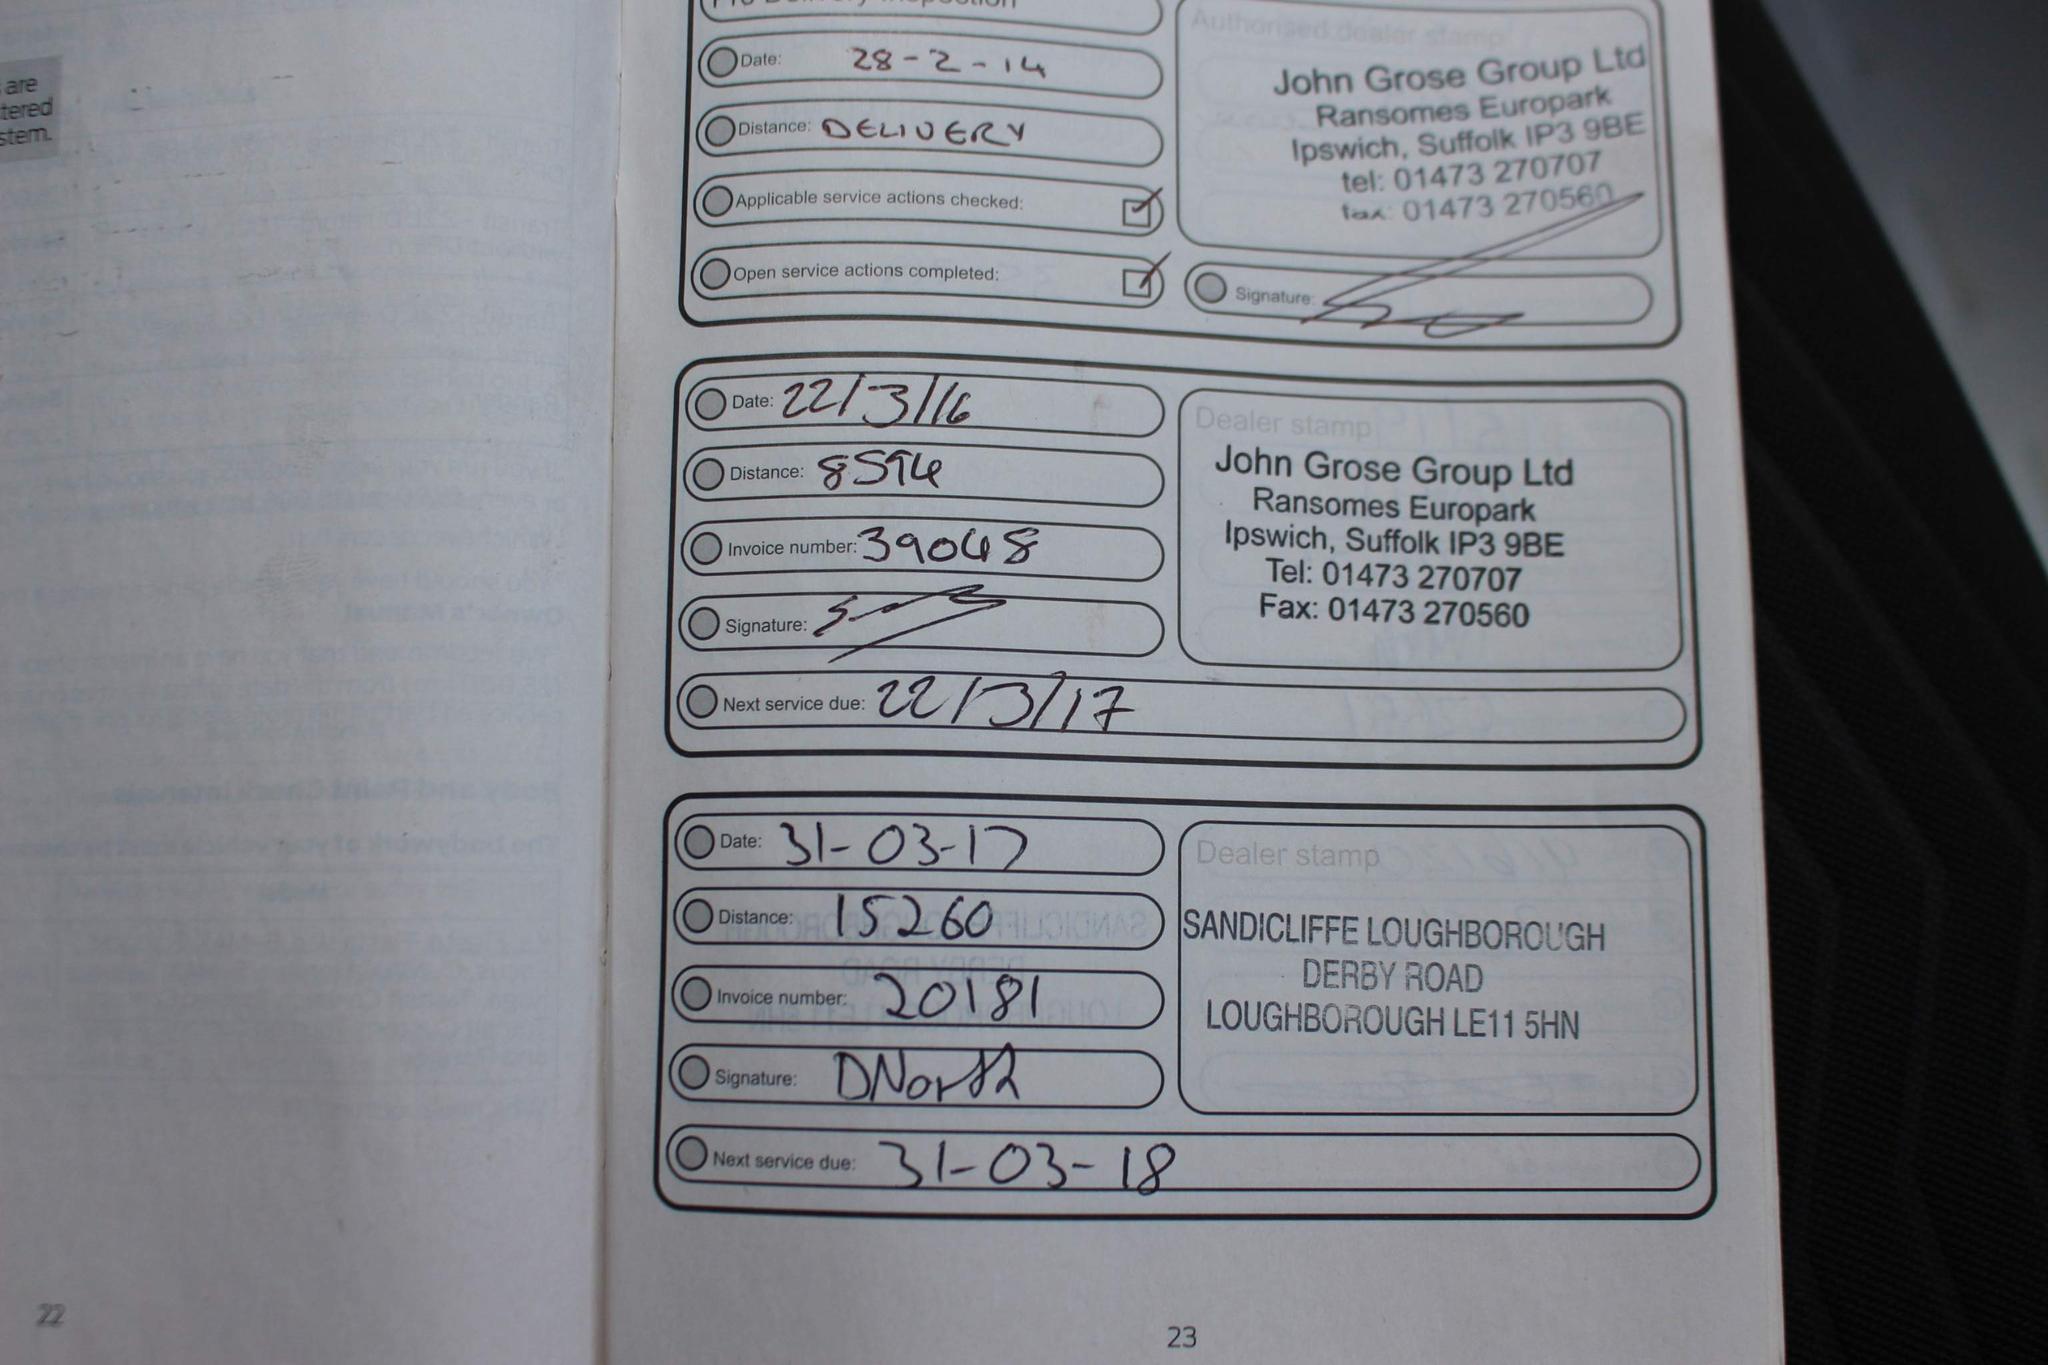 are
tered
stem.
Pre Delivery Inspection
Date: 28-2-14
Distance: DELIVERY
Applicable service actions checked:
Open service actions completed:
Authorised dealer stamp
John Grose Group Ltd
Ransomes Europark
Ipswich, Suffolk IP3 9BE
tel: 01473 270707
fax: 01473 270560
Signature:
Date: 22/3/16
Distance: 8594
Invoice number: 39048
Signature:
Next service due: 22/3/17
Dealer stamp
John Grose Group Ltd
Ransomes Europark
Ipswich, Suffolk IP3 9BE
Tel: 01473 270707
Fax: 01473 270560
Date: 31-03-17
Distance: 15260
Invoice number: 20181
Signature: DNorth
Next service due: 31-03-18
Dealer stamp
SANDICLIFFE LOUGHBOROUGH
DERBY ROAD
LOUGHBOROUGH LE11 5HN
22
23